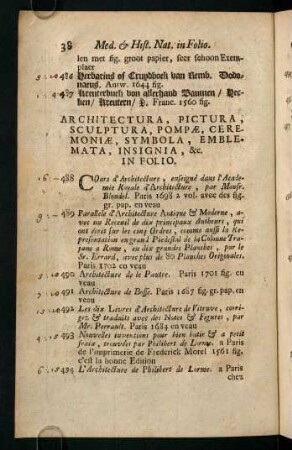 38 Med. & Hist. Nat. in Folio.
len met fig. groot papier, seer schoon Exem-
plaer
486 Herbarius of Cruydboek van Remb. Dodo-
naeus, Antw. 1644 fig.
487 Kreuterbuch von allerhand Baumen / Hec-
ken / Kreutern / Franc. 1560 fig.
ARCHITECTURA, PICTURA,
SCULPTURA, POMPÆ, CERE-
MONIÆ, SYMBOLA, EMBLE-
MATA, INSIGNIA, &c.
IN FOLIO.
488 COurs d'Architecture, enseigné dans l'Acade-
mie Royale d'Architecture, par Monsr.
Blondel. Paris 1698 2 vol. avec des fig.
gr. pap. en veau
489 Parallele d'Architecture Antique & Moderne, a-
vec un Recueil de dix principaux Autheurs, qui
ont écrit sur les cinq Ordres, comme aussi la Re-
presentation en grand Piedestal de la Colonne Tra-
jane a Rome, en dix grandes Planches, par le
Sr. Errard, avec plus de 80 Planches Originales.
Paris 1702 en veau
490 Architecture de le Pautre. Paris 1701 fig. en
veau
491 Architecture de Bosse. Paris 1687 fig. gr. pap. en
veau
492 Les dix Livres d'Architecture de Vitruve, corri-
gez & traduits avec des Notes & Figures, par
Mr. Perrault. Paris 1684 en veau
493 Nouvelles inventions pour bien batir & a petit
fraix, trouvées par Philibert de Lorme. a Paris
de l'imprimerie de Frederick Morel 1561 fig.
c'est la bonne Edition
494 L'Architecture de Philibert de Lorme. a Paris
chez